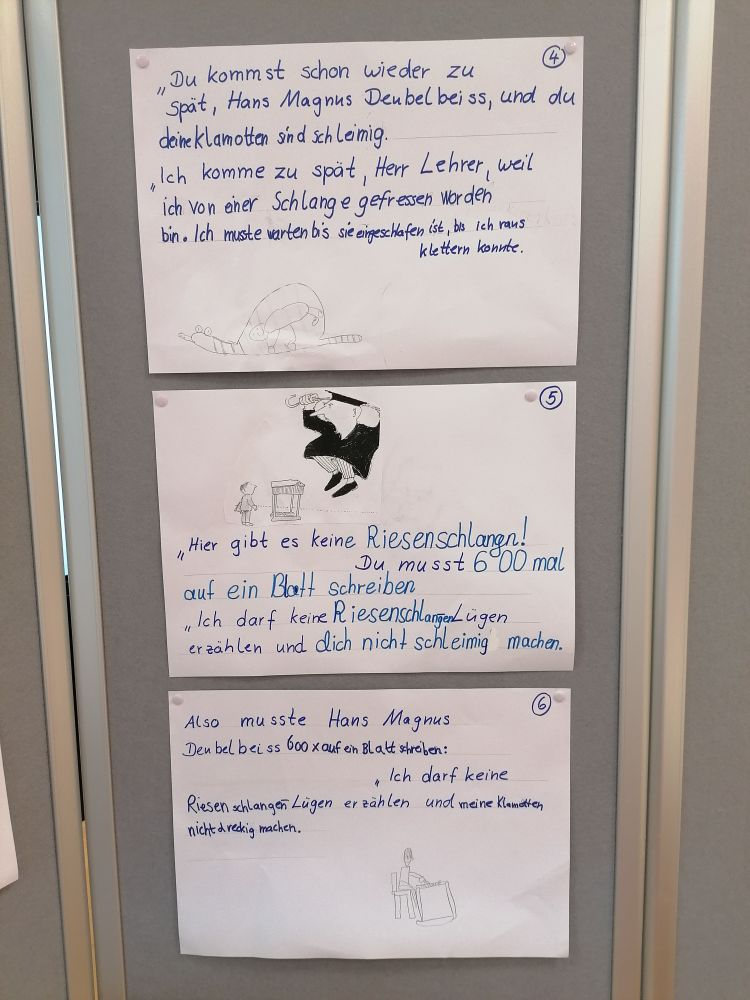 4
„Du kommst schon wieder zu
spät, Hans Magnus Deubelbeiss, und du
deine Klamotten sind schleimig.
„Ich komme zu spät, Herr Lehrer, weil
ich von einer Schlange gefressen worden
bin. Ich muste warten bis sie eingeschafen ist, bis ich raus
klettern konnte.
5
„Hier gibt es keine Riesenschlangn!
Du musst 600 mal
auf ein Blatt schreiben
„Ich darf keine Riesenschlangen Lügen
erzählen und dich nicht schleimig machen.
6
Also musste Hans Magnus
Deubelbeiss 600 x auf ein Blatt schreiben:
„Ich darf keine
Riesenschlangen Lügen erzählen und meine Klamotten
nicht dreckig machen.